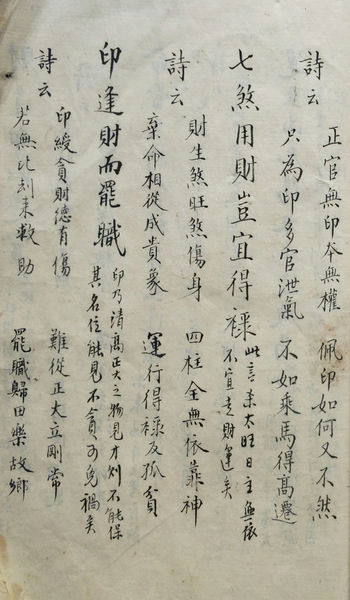 詩云 正官無印本無權 佩印如何又不然
只為印多官泄氣 不如乘馬得高遷
七煞用財豈宜得祿 此言杀太旺日主無依
不宜走財運矣
詩云 財生煞旺煞傷身 四柱全無依靠神
棄命相從成貴象 運行得祿反孤貧
印逢財而罷職 印乃清高正大之物見才則不能保
其名位能見不貪可免禍矣
詩云 印綬貪財德有傷 難從正大立剛常
若無比刦来救助 罷職歸田樂故鄉